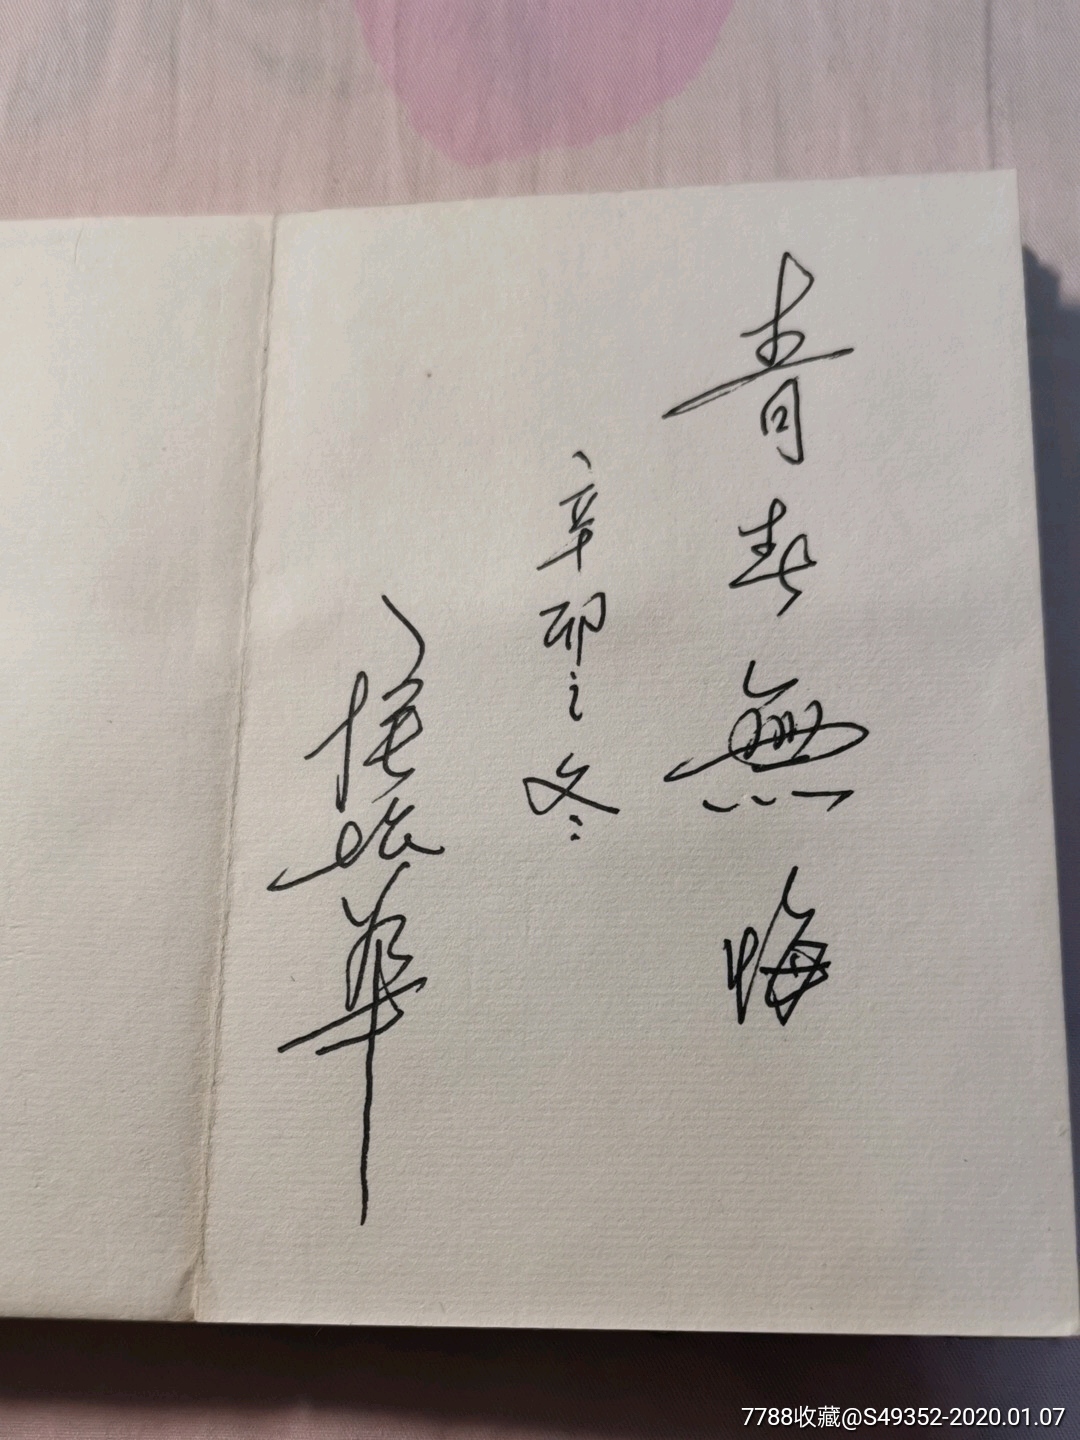 青春無悔
辛卯之冬
華
7788收藏@S49352-2020.01.07